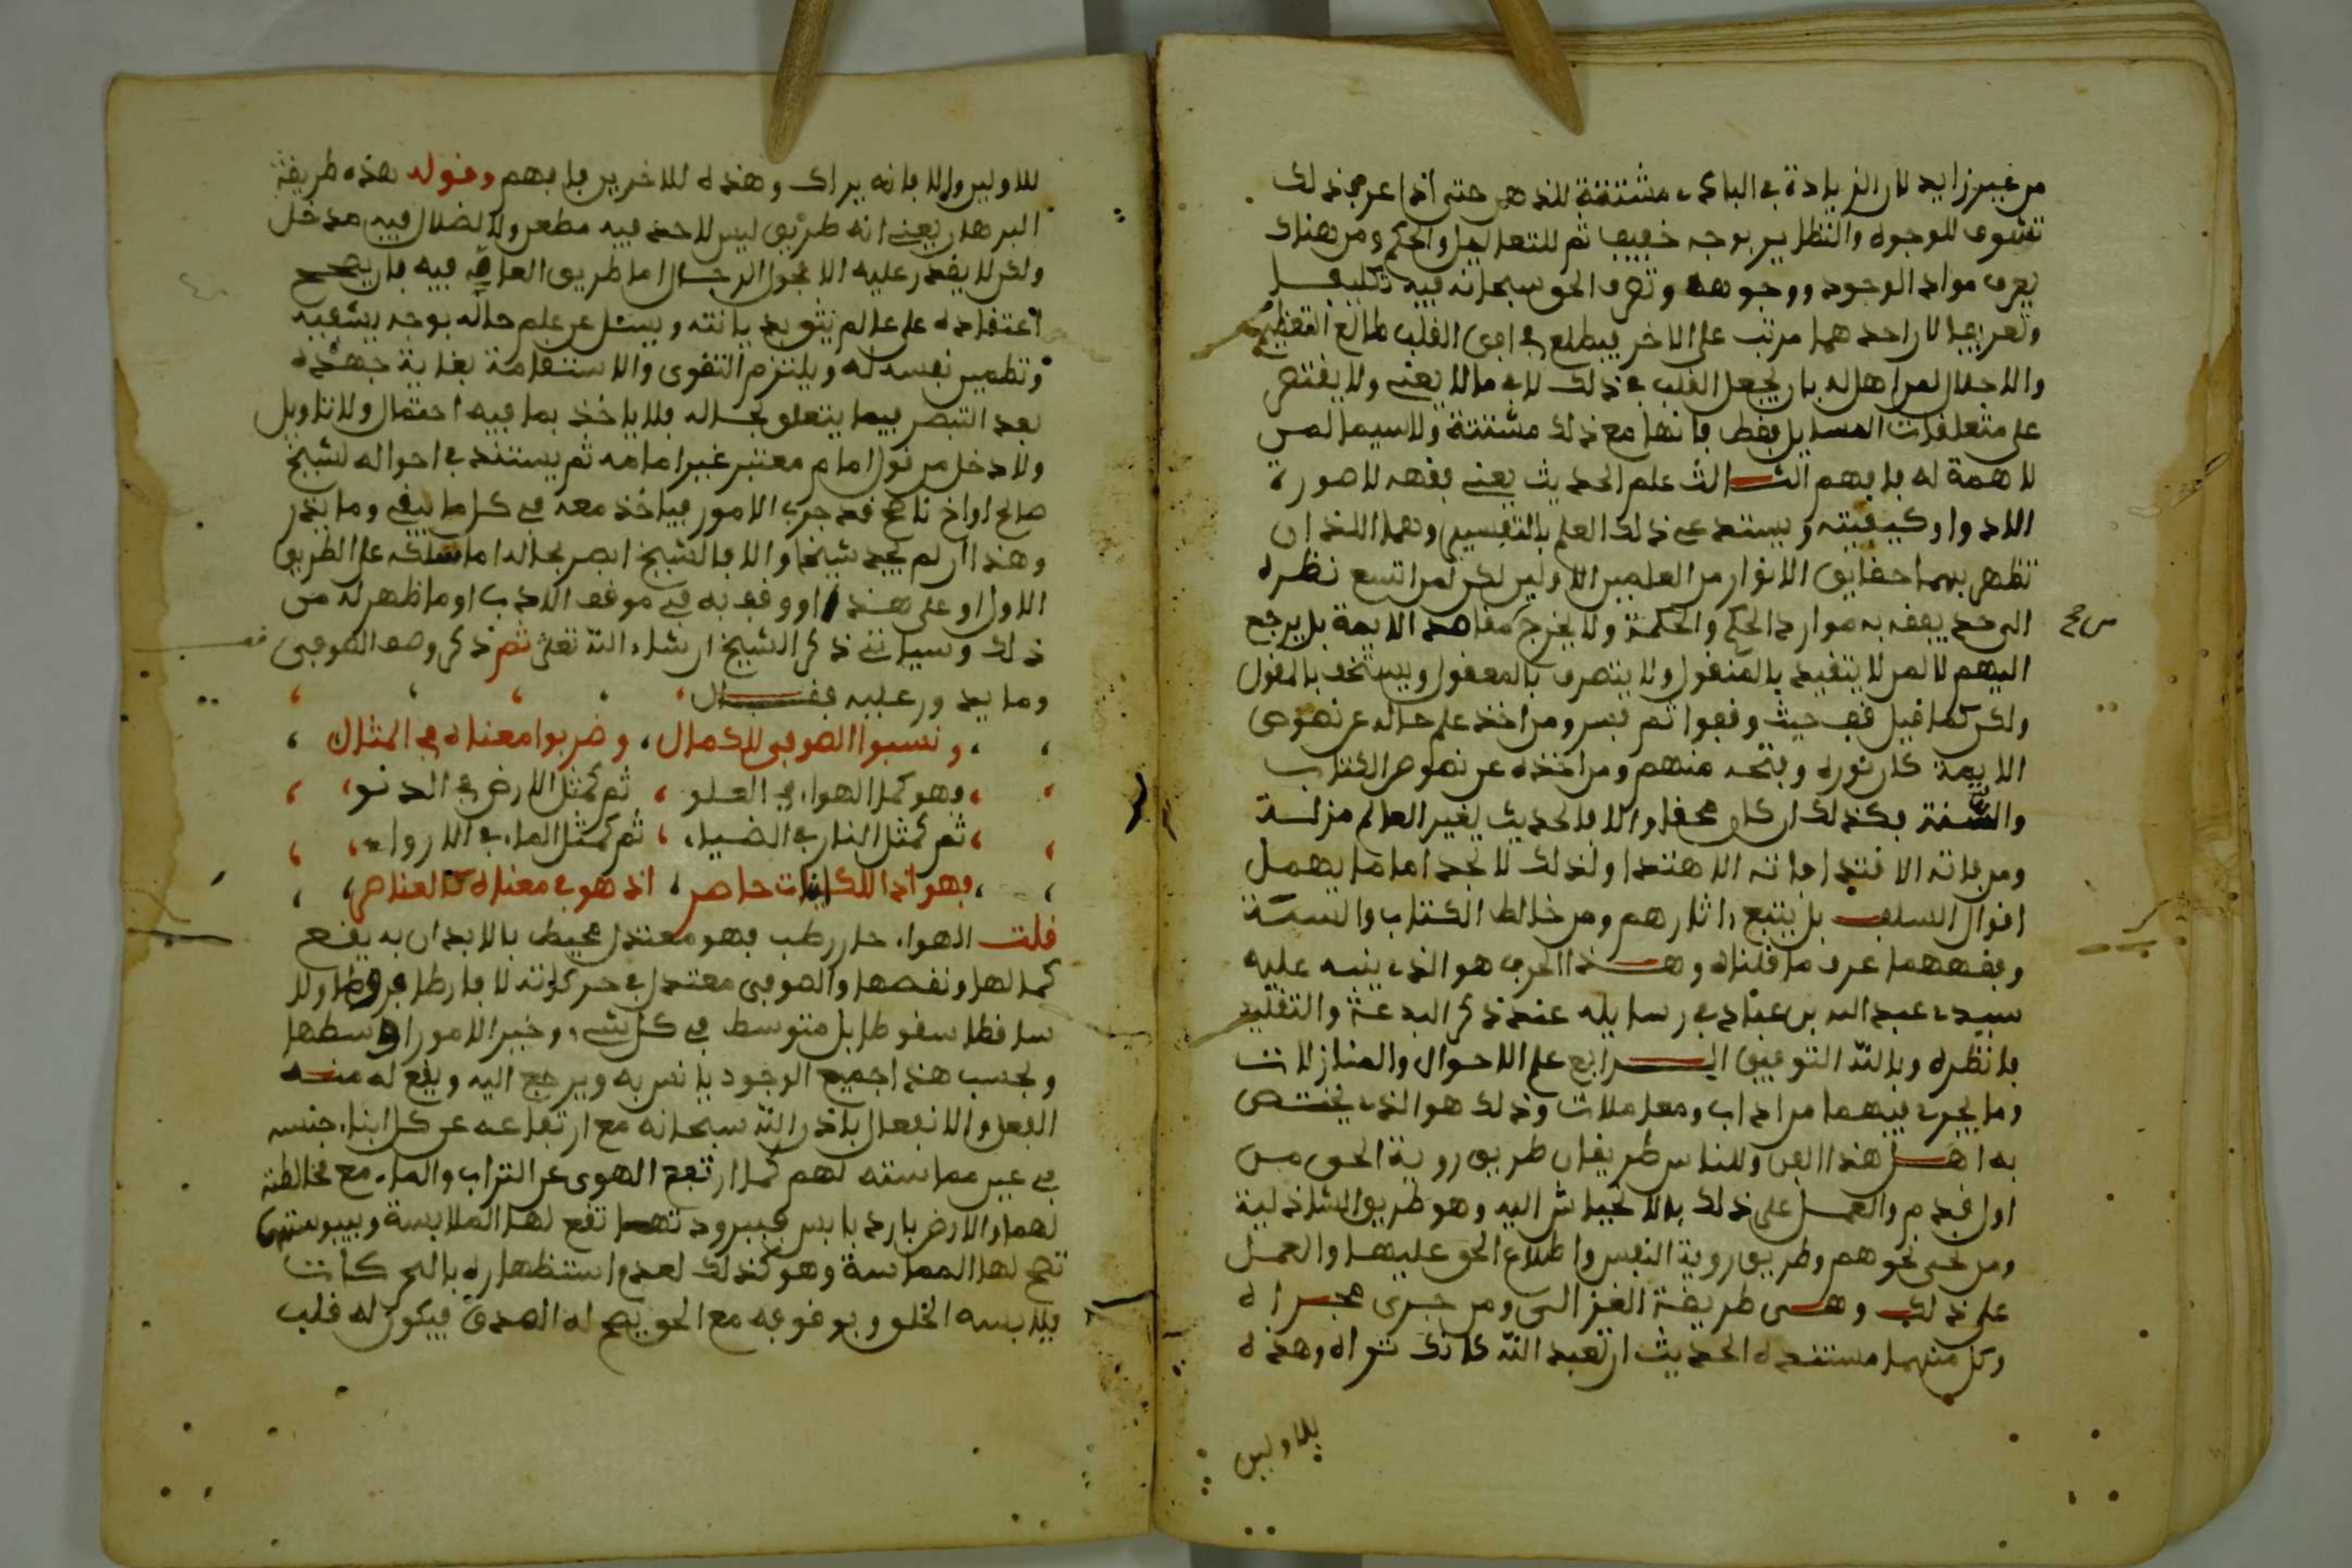 من غير زايد لان الزيادة في البادئ مشتتة للذهن حتى اذا عرف ذلك
تشوف للوجوه والنظاير بوجه خفيف ثم للتعاليل والحكم ومن هناك
يعرف مواد الوجود ووجوهه وتصرف الحق سبحانه فيه تكليفا
وتعريفا لان احدهما مرتب على الاخر فيطلع في افق القلب طالع التعظيم
والاجلال لمن اهل له بان يجعل القلب في ذلك لا في ما لا يعني ولا يقتصر
على متعلقات المسايل فقط فانها مع ذلك مشتتة ولا سيما لمن
لا همة له فافهم الثالث علم الحديث يعني فقهه لا صورة
الادوا وكيفيته ويستدعي ذلك العلم بالتفسير وهما اللذان
تظهر بهما حقايق الانوار من العلمين الاولين لكن لمن اتسع نظره
الى حد يفقه به موارد الحكم والحكمة ولا يخرج مقاصد الايمة بل يرجع
اليهم لا لمن لا يتقيد بالمنقول ولا يتصرف بالمعقول ويستخف بالمقول
ولكن كما قيل قف حيث وقفوا ثم فسر ومن اخذ علم حاله عن نصوص
الايمة كان نوره وفتحه منهم ومن اخذه عن نصوص الكتاب
والسنة فكذلك ان كان محقا والا فالحديث لغير العالم مزلة
ومن فاته الاقتدا فاته الاهتدا ولذلك لا تجد اماما يهمل
اقوال السلف بل يتبع اثارهم ومن خالط الكتاب والسنة
وفقههما عرف ما قلناه وهذا الحرف هو الذي ينبه عليه
سيدي عبد الله بن عباد في رسايله عند ذكر البدعة والتقليد
فانظره وبالله التوفيق الرابع علم الاحوال والمنازلات
وما يجري فيهما من اداب ومعاملات وذلك هو الذي يختص
به اهل هذا الفن وللناس طريقان طريق روية الحق من
اول قدم والعمل على ذلك بالانحياش اليه وهو طريق الشاذلية
ومن نحى نحوهم وطريق روية النفس واطلاع الحق عليها والعمل
على ذلك وهي طريقة الغزالي ومن جرى مجراه
وكل منهما مستنده الحديث ان تعبد الله كانك تراه وهذه
للاولين
للاولين والا فانه يراك وهذه للاخرين فافهم وقوله هذه طريقة
البرهان يعني انه طريق ليس لاحد فيه مطعن ولا لضلال فيه مدخل
ولكن لا يقدر عليه الا فحول الرجال اما طريق العامة فيه فان يصحح
اعتقاده على عالم يثق بديانته ويسئل عن علم حاله بوجه يشفيه
وتطمين نفسه له ويلتزم التقوى والاستقامة بغاية جهده
بعد التبصر فيما يتعلق بحاله فلا ياخذ بما فيه احتمال ولا تاويل
ولا دخل من قول امام معتبر غير امامه ثم يستند في احواله لشيخ
صالح او اخ ناصح قد جرب الامور فياخذ معه في كل ما يبقي وما يذر
وهذا ان لم يجد شيخا والا فالشيخ ابصر بحاله اما سلكه على الطريق
الاول او على هذا او وقف به في موقف الادب او ما ظهر له من
ذلك وسياتي ذكر الشيخ ان شاء الله تعلى ثم ذكر وصف الصوفي
وما يدور عليه فقال
ونسبوا الصوفي للكمال، وضربوا معناه في المثال
فهو كما الهواء في العلو، ثم كمثل الارض في الدنو
ثم كمثل النار في الضياء، ثم كمثل الماء في الارواء
فهو اذا للكاينات حاصر، اذ هو في معناه كالعناصر
قلت الهواء حار رطب فهو معتدل محيط بالابدان به يقع
كمالها ونقصها والصوفي معتدل في حركاته لا فارطا فروطا ولا
ساقطا سقوطا بل متوسط في كل شيء وخير الامور اوسطها
وبحسب هذا جميع الوجود يانس به ويرجع اليه ويقع له منه
الفعل والانفعال باذن الله سبحانه مع ارتفاعه عن كل ابناء جنسه
في عين مماسته لهم كما ارتفع الهوى عن التراب والماء مع مخالطته
لهما والارض بارد يابس فببرودتها تقع لها الملابسة وبيبوستها
تصح لها المماسة وهو كذلك لعدم استظهاره بالحركات
يلابسه الخلق وبوقوفه مع الحق يصح له الصدق فيكون له قلب